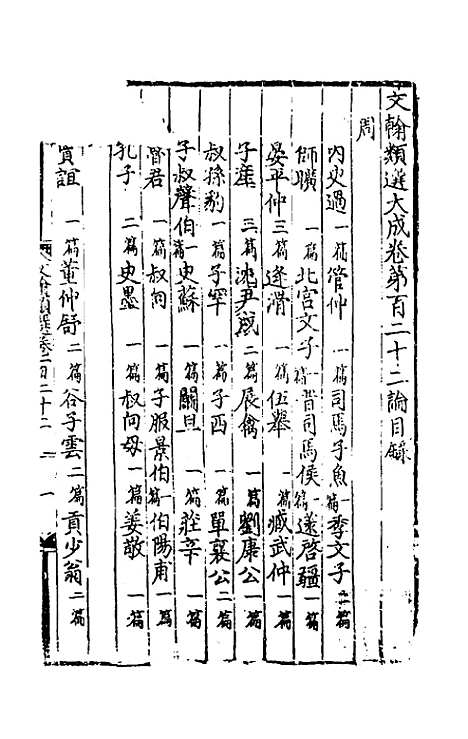 文翰類選大成卷第百二十二論目錄
周
內史過一篇管仲一篇司馬子魚一篇季文子二篇
師曠一篇北宮文子一篇晋司馬侯一篇薳啓疆一篇
晏平仲三篇逢滑一篇伍舉一篇臧武仲一篇
子產三篇沈尹戌二篇展禽一篇劉康公一篇
叔孫豹一篇子罕一篇子西一篇單襄公二篇
子叔聲伯一篇史蘇一篇鬭且一篇莊辛一篇
晋君一篇叔向一篇子服景伯一篇伯陽甫一篇
孔子二篇史墨一篇叔向母一篇姜敬一篇
賈誼一篇董仲舒二篇谷子雲二篇貢少翁二篇
文翰類選卷百二十二 一